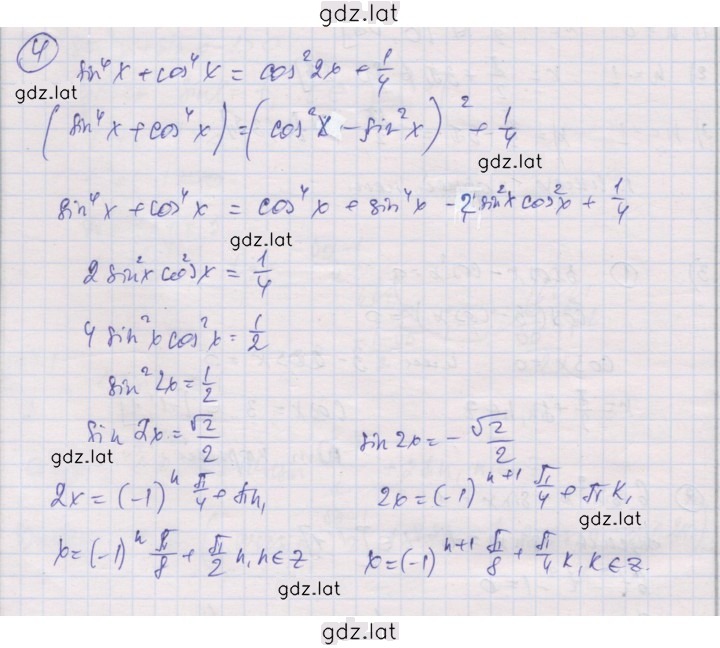 gdz.lat
④ sin⁴x + cos⁴x = cos²2x + 1/4
gdz.lat
(sin⁴x + cos⁴x) = (cos²x − sin²x)² + 1/4
gdz.lat
sin⁴x + cos⁴x = cos⁴x + sin⁴x − 2 sin²x cos²x + 1/4
gdz.lat
2 sin²x cos²x = 1/4
4 sin²x cos²x = 1/2
sin²2x = 1/2
sin 2x = √2/2
sin 2x = − √2/2
gdz.lat
2x = (−1)ⁿ π/4 + πn,
2x = (−1)ⁿ⁺¹ π/4 + πk,
gdz.lat
x = (−1)ⁿ π/8 + π/2 n, n ∈ z
x = (−1)ⁿ⁺¹ π/8 + π/4 k, k ∈ z.
gdz.lat
gdz.lat